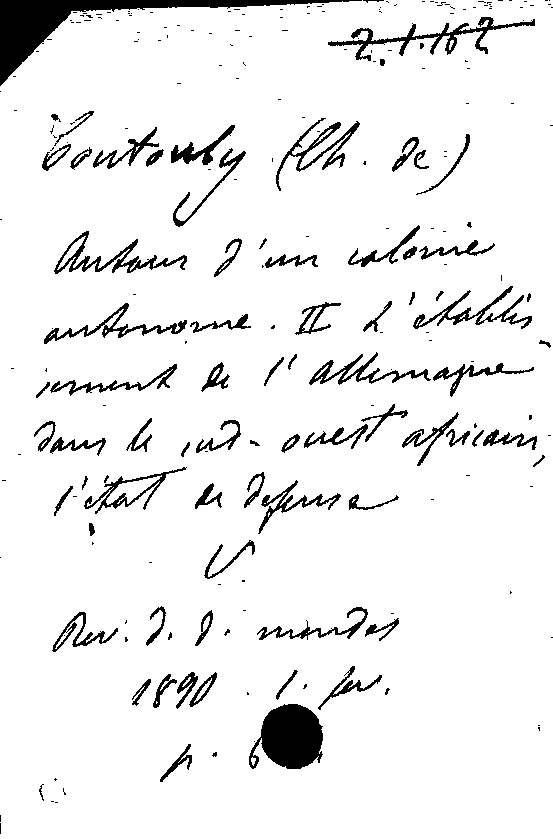 2.1.162
Coutouly (Ch. de)
Autour d'un colonie
autonome. II L'établis-
sement de l'Allemagne
dans le sud-ouest africain,
l'état de defense
Rev. d. d. mondes
1890. 1. fev.
p. 6